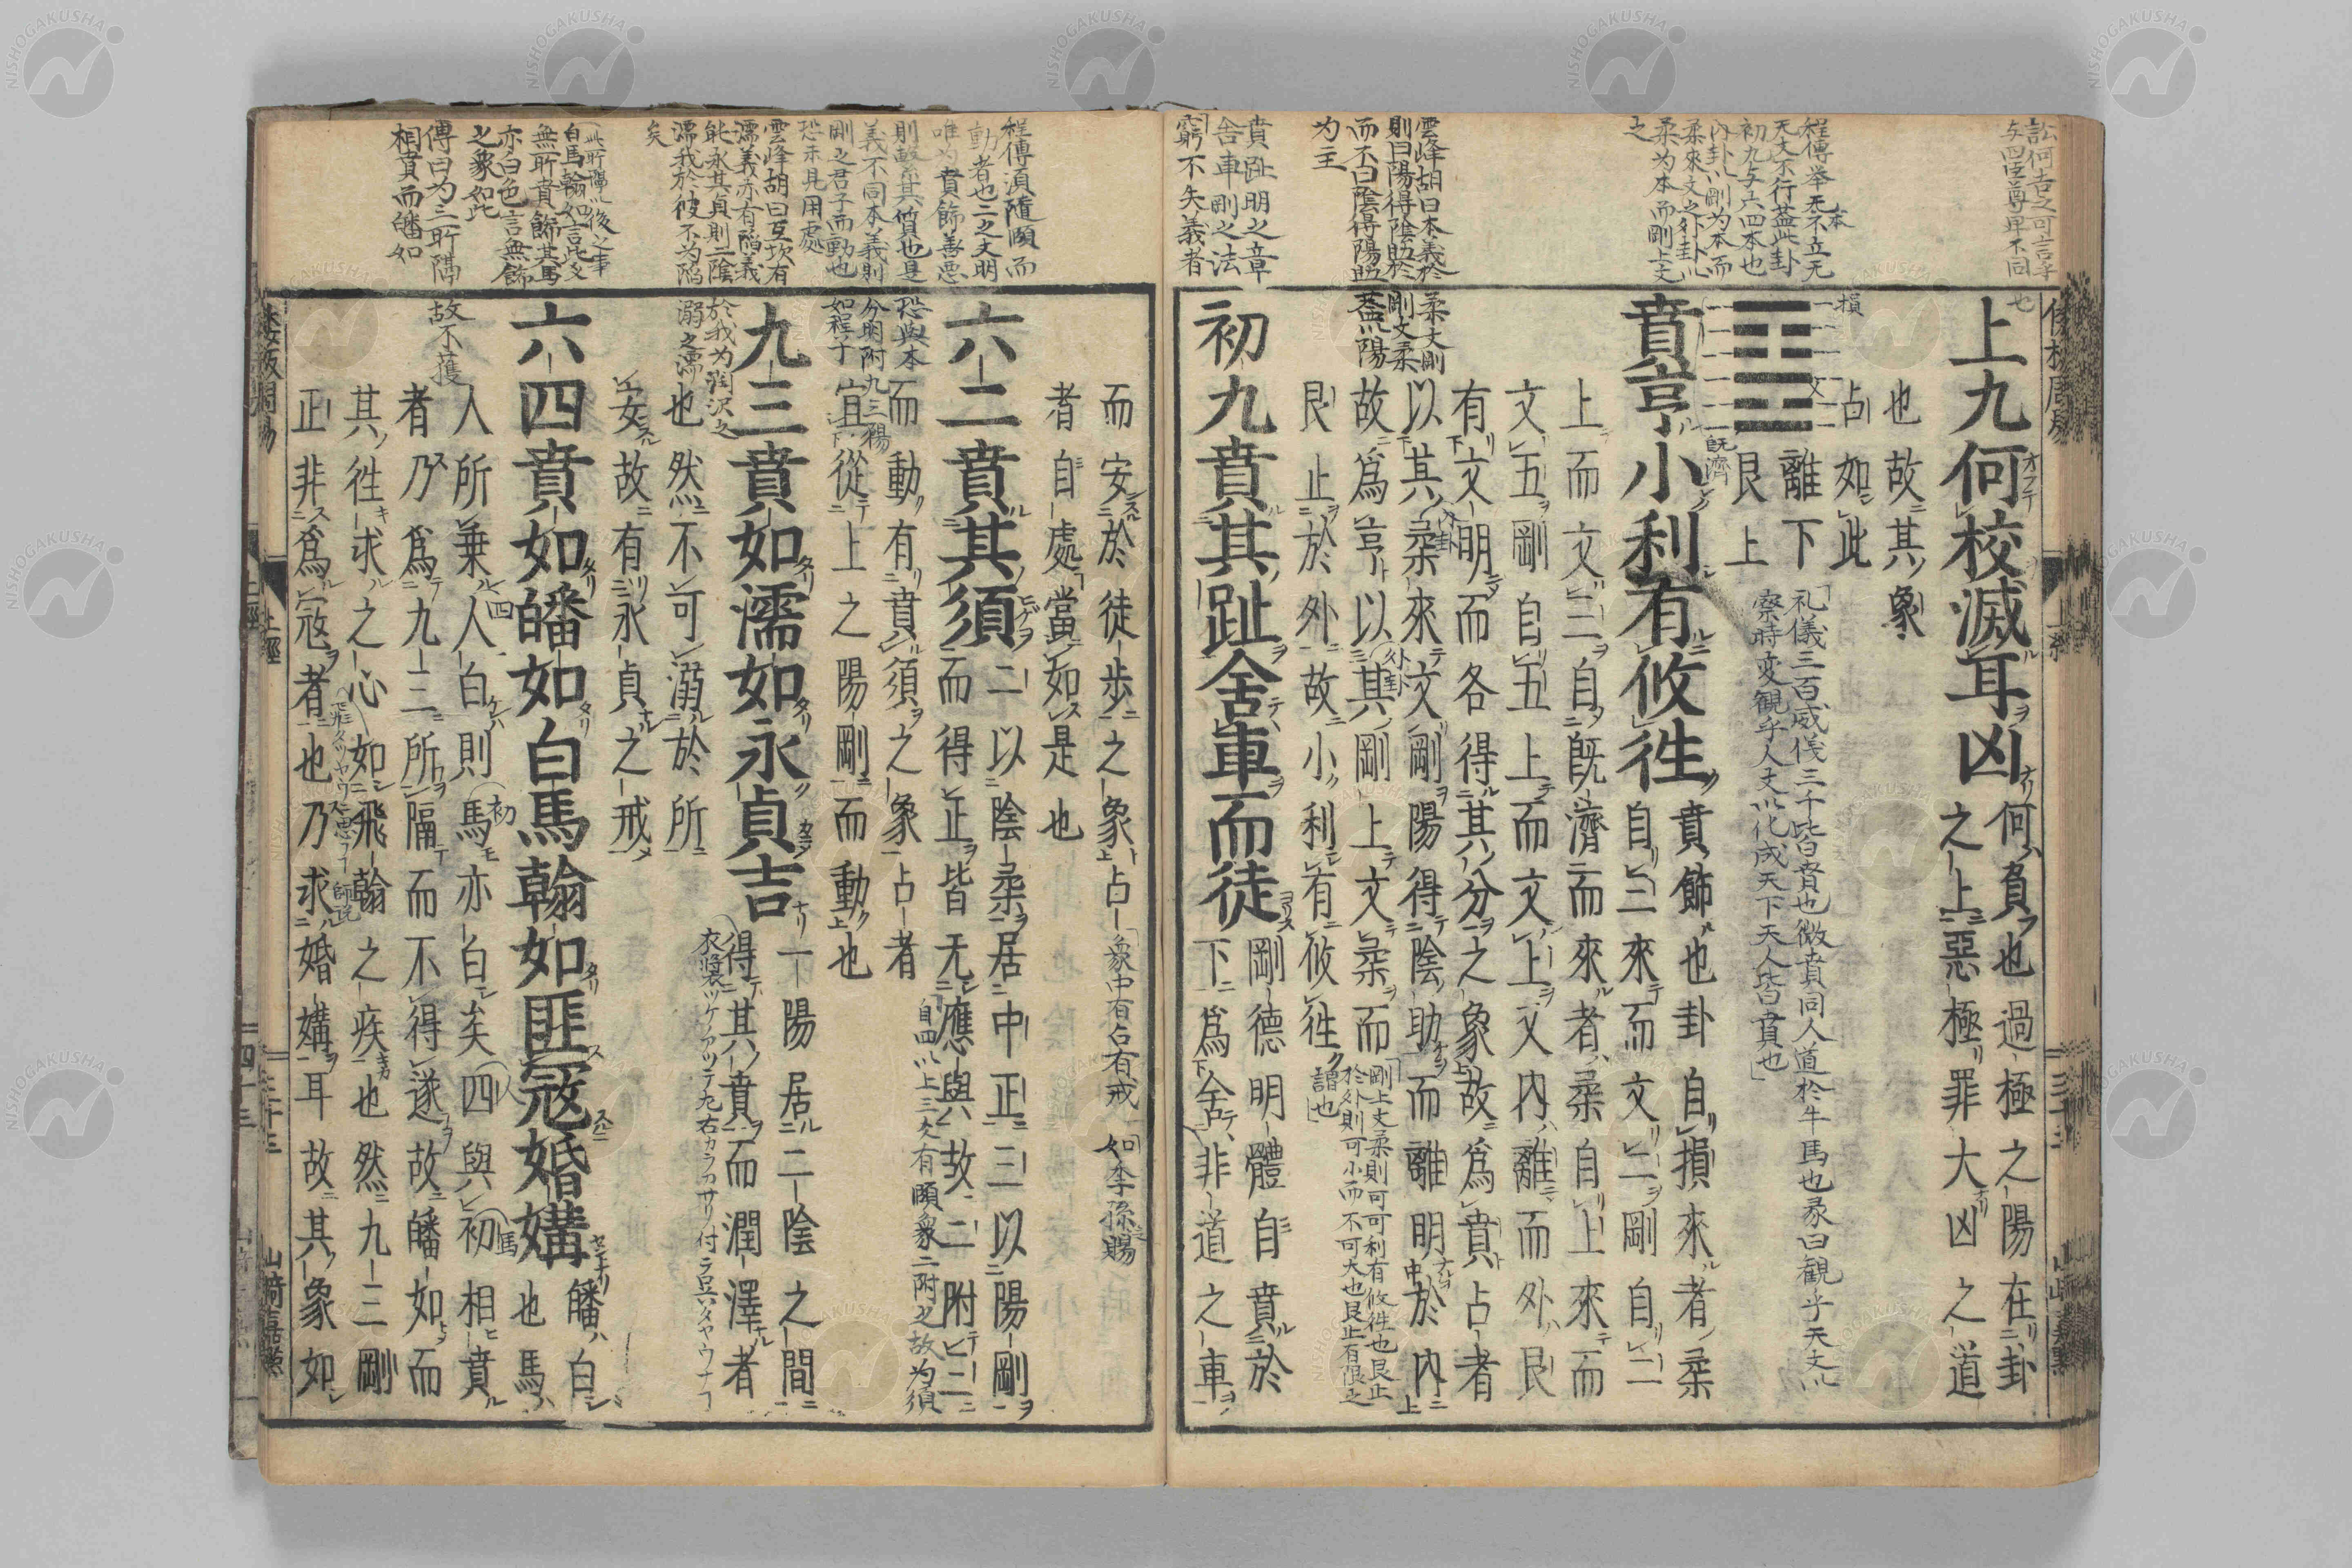 上九何校滅耳凶
何負也過極之陽在卦
之上惡極罪大凶之道
也故其象
占如此
離下
艮上
賁亨小利有攸往
賁飾也卦自損來者柔
自三來而文二剛自二
上而文三自既濟而來者柔自上來而
文五剛自五上而文上又內離而外艮
有文明而各得其分之象故爲賁占者
以其柔來文剛陽得陰助而離明於內
故爲亨以其剛上文柔而
艮止於外故小利有攸往
剛德明體自賁於
下爲舍非道之車
初九賁其趾舍車而徒
而安於徒步之象占
者自處當如是也
六二賁其須
二以陰柔居中正三以陽剛
而得正皆无應與故二附三
而動有賁須之象占者
宜從上之陽剛而動也
九三賁如濡如永貞吉
一陽居二陰之間
得其賁而潤澤者
也然不可溺於所
安故有永貞之戒
六四賁如皤如白馬翰如匪寇婚媾
皤白
也馬
人所乗人白則馬亦白矣四與初相賁
者乃爲九三所隔而不得遂故皤如而
其往求之心如飛翰之疾也然九三剛
正非爲寇者也乃求婚媾耳故其象如
礼儀三百威儀三千皆賁也微賁同人道於牛馬也彖曰観乎天文以
察時変観乎人文以化成天下天人皆賁也
剛上文柔則可可利有攸往也艮止
於外則可小而不可大也艮止有限之
謂也
象中有占有戒
如季孫賜
自四以上三爻有頤象二附之故为須
程傳須随頤而
動者也二之文明
唯为賁飾善悪
則繋其質也是
義不同本義則
剛之君子而動也
恐未見用處
恐與本
分明附
如程子
雲峰胡曰互坎有
濡義亦有陥義
能永其貞則二陰
濡我於彼不为陥
矣
於我为潤沢之
溺之濡
白馬翰如言此爻
無所賁飾其馬
亦白色言無飾
之象如此
傳曰为三所隔
故不獲
相賁而皤如
雲峰胡曰本義於
柔文剛
則曰陽得陰助於
剛文柔
而不曰陰得陽助
蓋以陽
为主
賁趾明之章
舍車剛之法
窮不失義者
程傳挙无本不立无
文不行蓋此卦
初九与六四本也
内卦以剛为本而
柔來文之外卦以
柔为本而剛上文
之
上經
三十三
山崎嘉點